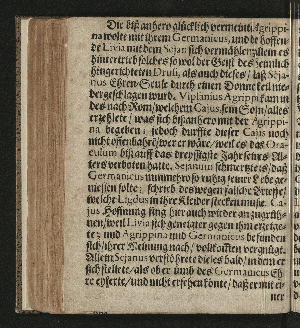 Die biß anhero glücklich vermeinte Agrippi-
na wolte mit ihrem Germanicus, und die hoffen-
de Livia mit dem Sejan sich vermählen; allein es
hintertrieb solches so wol der Geist des heimlich
hingerichteten Drusi, als auch dieses / daß Seja-
nus Ehren-Seule durch einen Donnerkeil nie-
dergeschlagen wurd. Vipsanius Agrippa kam in-
des nach Rom / welchem Cajus, sein Sohn / alles
erzehlete / was sich bißanhero mit der Agrippi-
na begeben; jedoch durffte dieser Cajus noch
nicht offenbahren / wer er wäre / weil es das Ora-
culum biß auff das dreyssigste Jahr seines Al-
ters verboten hatte. Sejanum schmertzte es / daß
Germanicus nunmehro so ruhig seiner Liebe ge-
niessen solte; schrieb deswegen falsche Brieffe /
welche Ligdus in ihre Kleider stecken muste. Ca-
jus Hoffnung fing hier auch wieder an zu grüh-
nen / weil Livia sich geneigter gegen ihm erzeig-
te; und Agrippina und Germanicus befunden
sich / ihrer Meinung nach / vollkommen vergnügt.
Allein Sejanus verstöhrete dieses bald / indem er
sich stellete / als ob er umb des Germanicus Eh-
re eyferte / und nicht ersehen könte / daß er mit ei-
ner